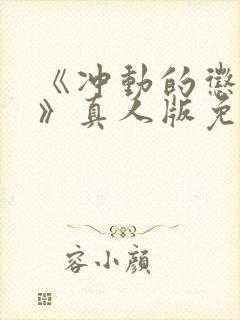 《冲動的懲
》真人版免
容小顔